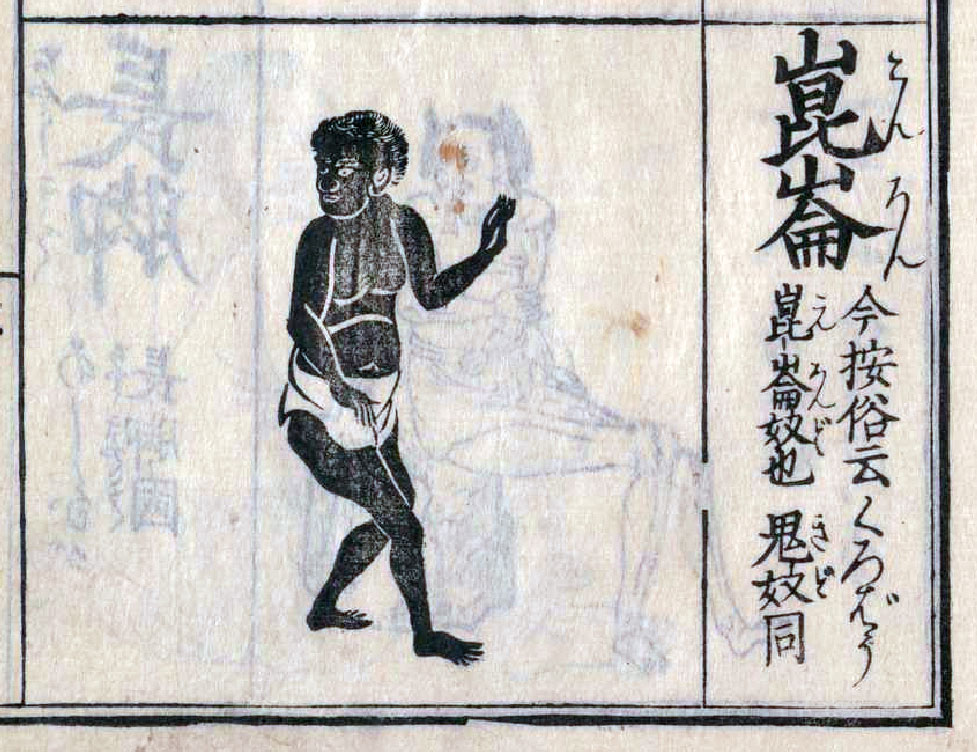 崑崙
こんろん
今按俗云くろばう
崑崙奴也 鬼奴同
こんろんど きど